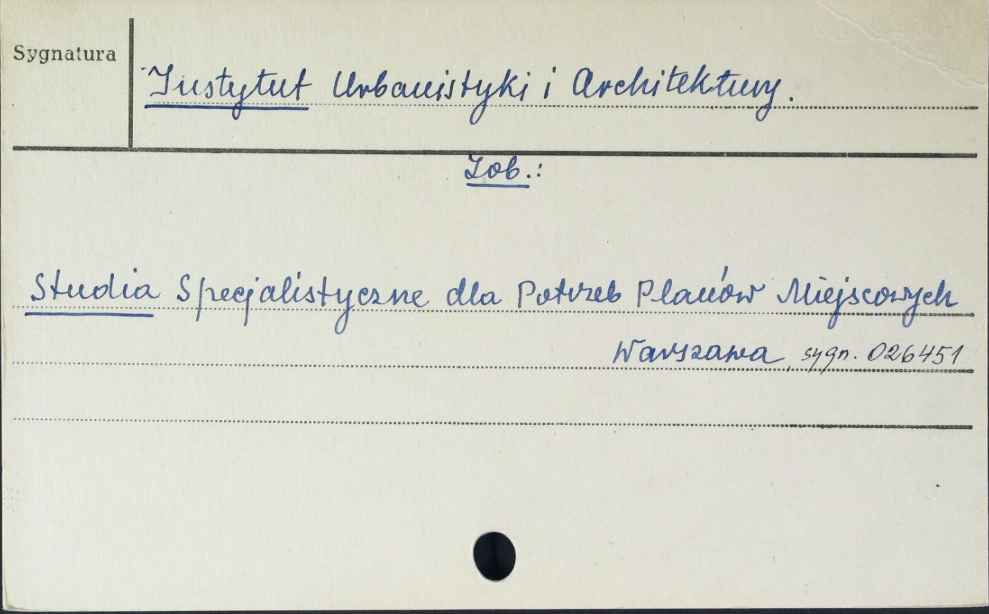 Sygnatura
Instytut Urbanistyki i Architektury.
Zob.:
Studia Specjalistyczne dla Potrzeb Planów Miejscowych
Warszawa, sygn. 026451